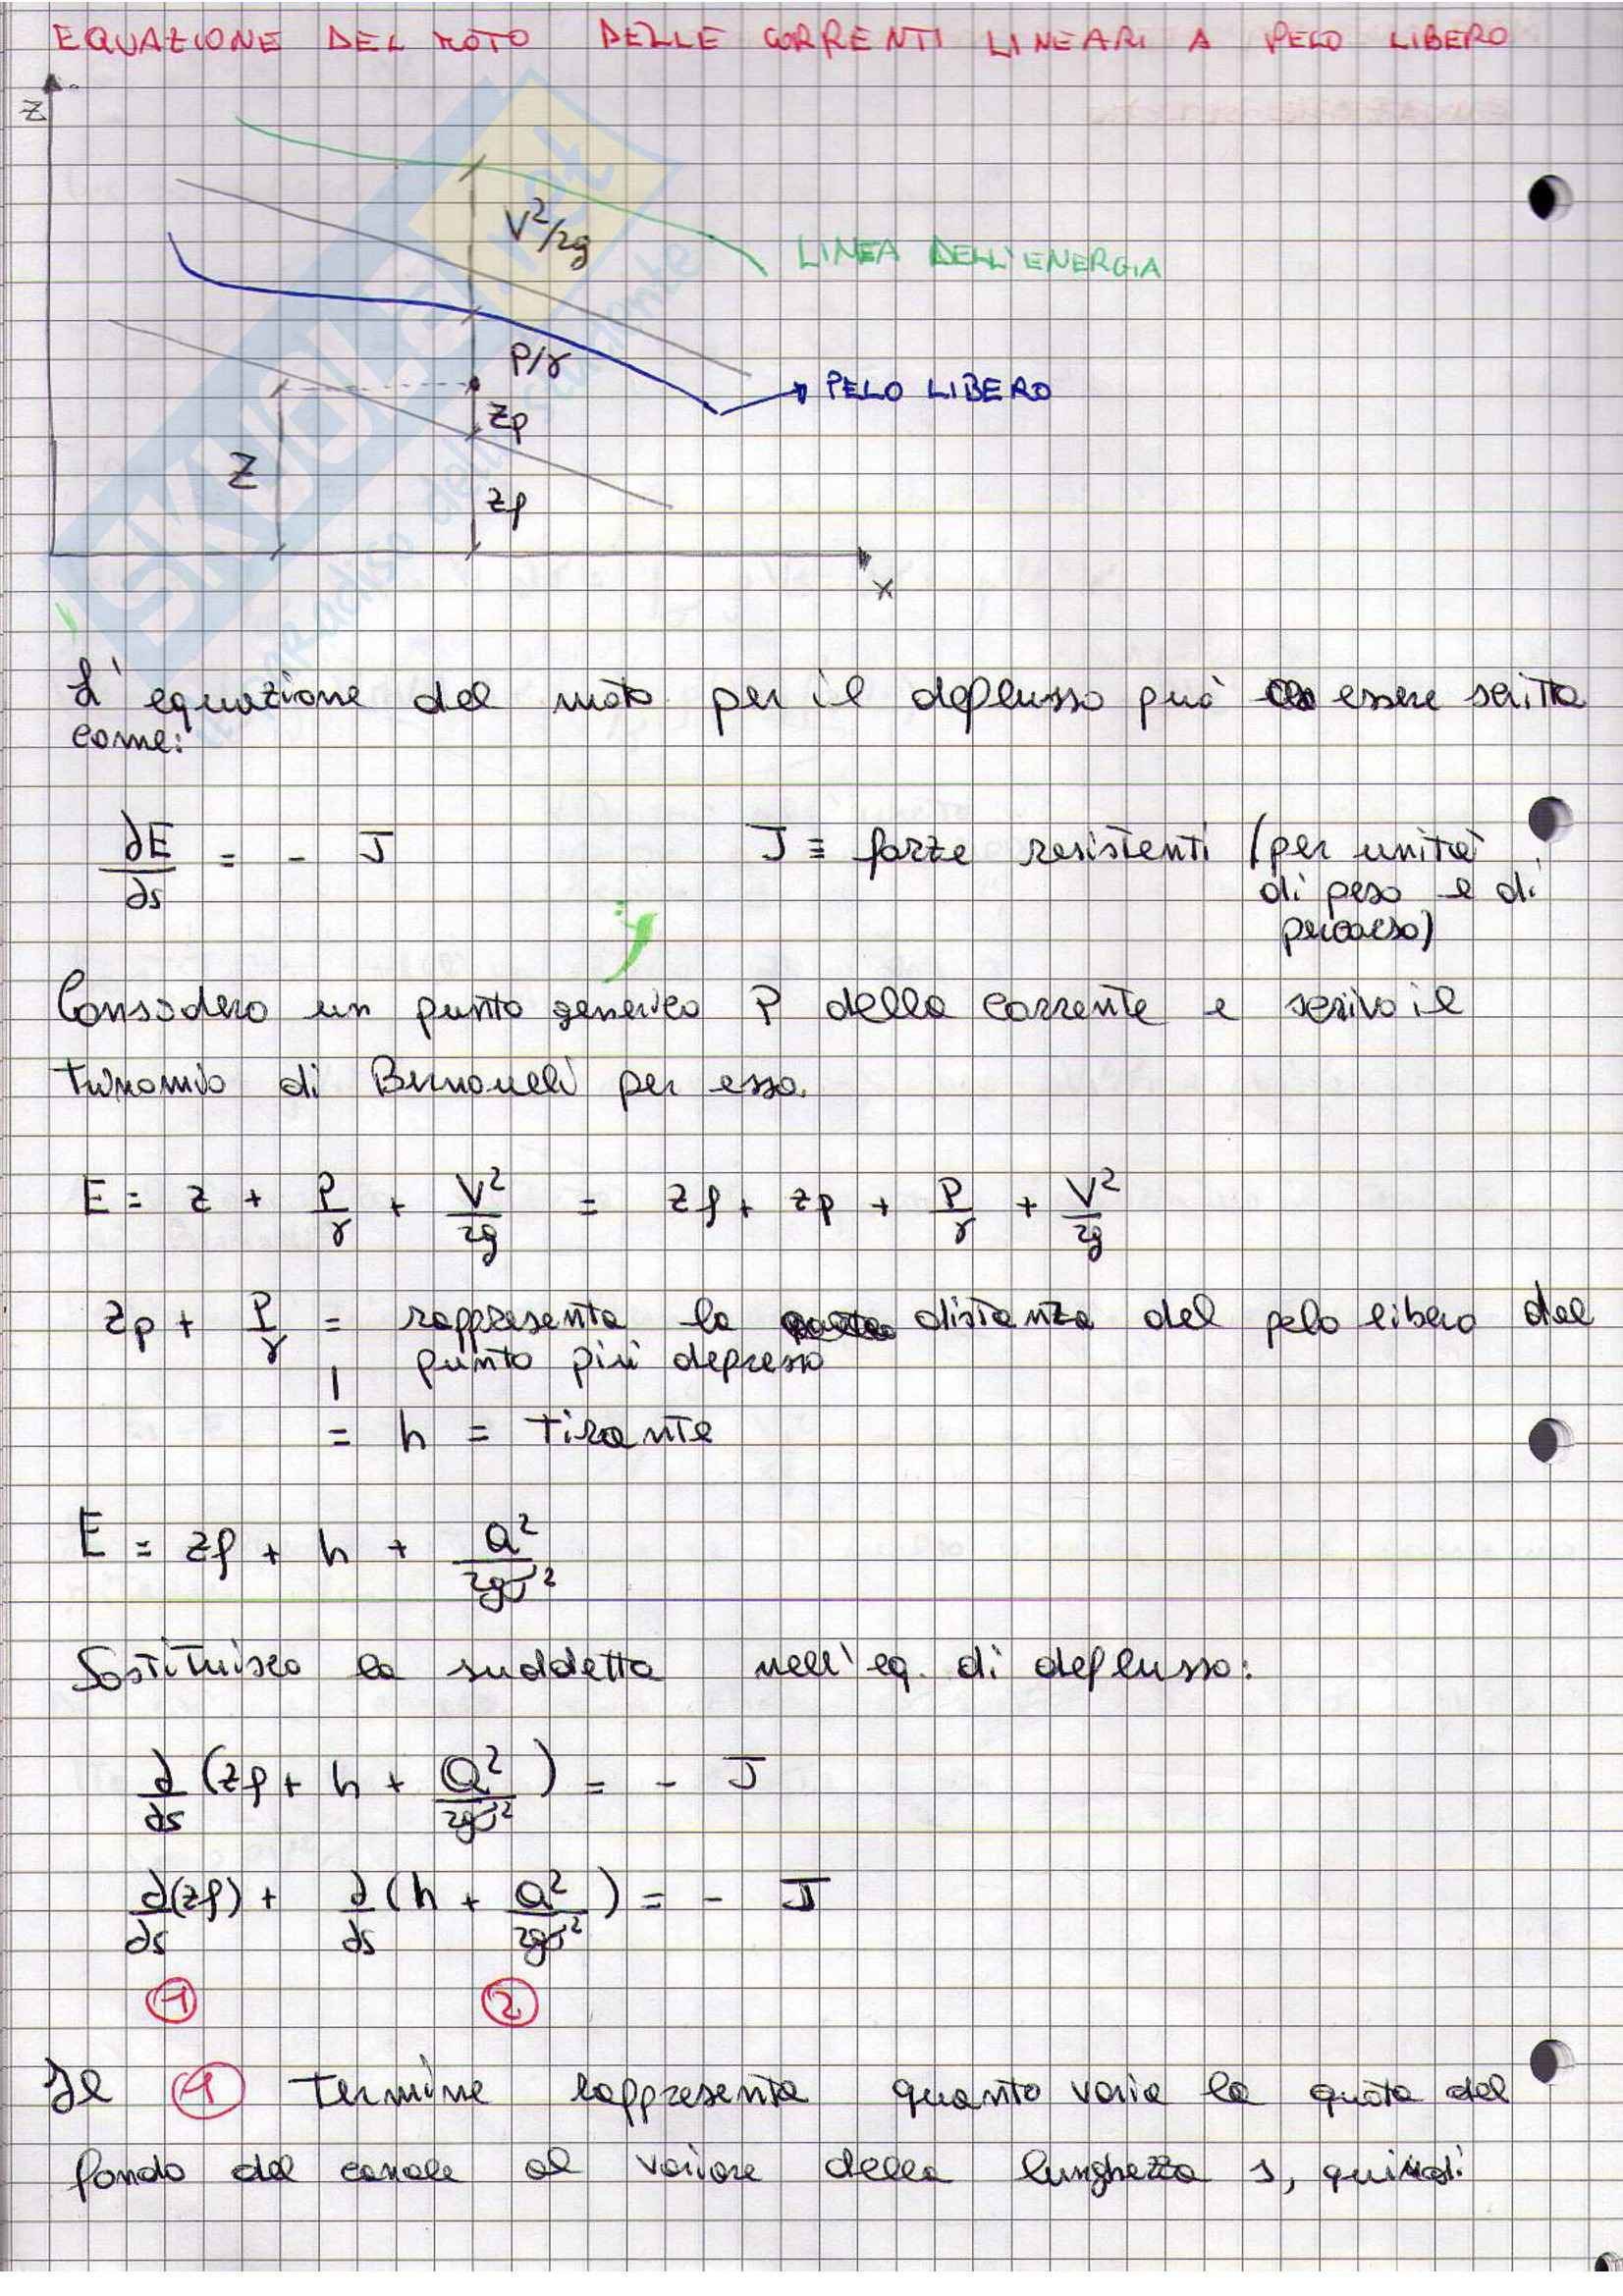 EQUAZIONE DEL MOTO DELLE CORRENTI LINEARI A PELO LIBERO
Z
V²/2g
LINEA DELL'ENERGIA
P/γ
PELO LIBERO
zp
Z
zf
x
SKUOLA.net
il paradiso dello studente
L'equazione del moto per il deflusso può essere scritta
come:
∂E/∂s = - J J ≡ forze resistenti (per unità
di peso e di
percorso)
Considero un punto generico P della corrente e scrivo il
trinomio di Bernoulli per esso.
E = z + P/γ + V²/2g = zf + zp + P/γ + V²/2g
zp + P/γ = rappresenta la distanza del pelo libero dal
punto più depresso
= h = tirante
E = zf + h + Q²/2gσ²
Sostituisco la suddetta nell'eq. di deflusso:
∂/∂s (zf + h + Q²/2gσ²) = - J
∂(zf)/∂s + ∂/∂s (h + Q²/2gσ²) = - J
① ②
Il ① termine rappresenta quanto varia la quota del
fondo del canale al variare della lunghezza s, quindi